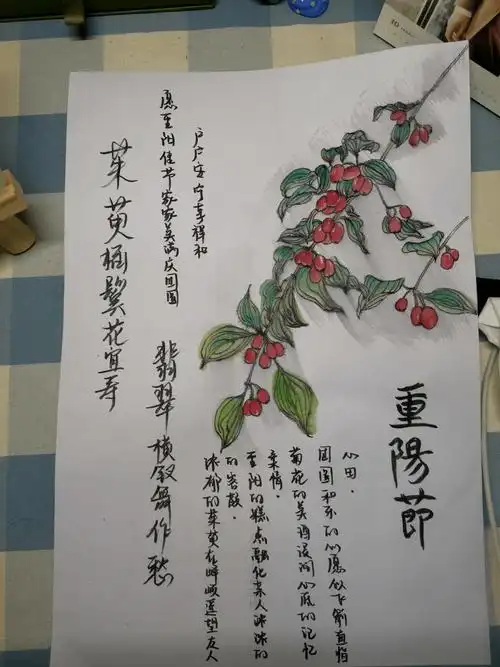 重陽節
茱萸插鬓花宜寿
翡翠横钗舞作愁
愿重阳佳节家家美满庆团圆
户户安宁享祥和
浓郁的茱萸在呼唤遥望友人
的容颜。
重阳的糕点融化亲人浓浓的
柔情。
菊花的美酒浸润心底的记忆
团圆和乐的心愿似飞箭直指
心田。